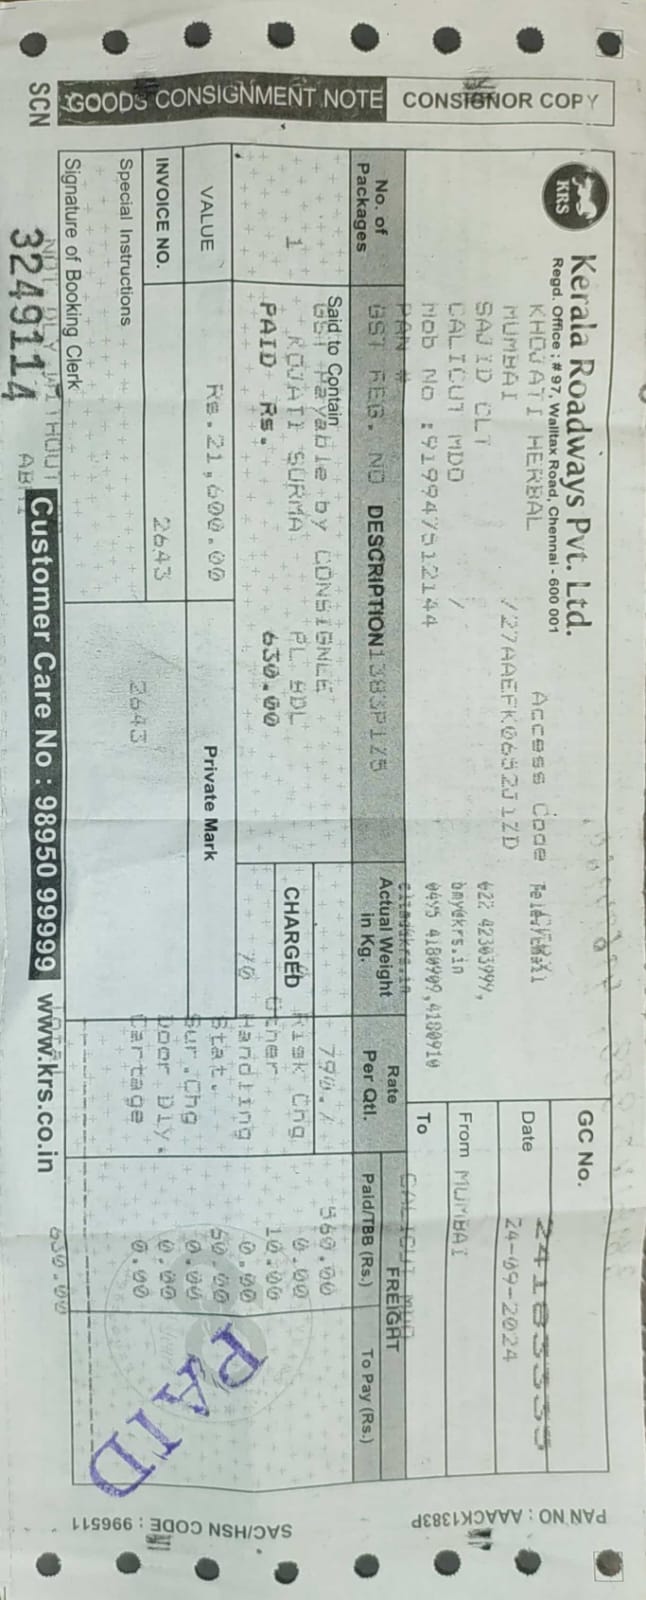 GOODS CONSIGNMENT NOTE CONSIGNOR COPY
KRS
Kerala Roadways Pvt. Ltd.
Regd. Office : # 97, Walltax Road, Chennai - 600 001
GC No.
KHOJATI HERBAL Access Code
Date 24-09-2024
MUMBAI /27AAEFK0652J1ZD
SAJID CLT 022 42303999,
From MUMBAI
CALICUT MDO / bmy@krs.in
Mob No :919947512144 0495 4180909,4180910
To CALICUT
PAN #
No. of Packages
GST REG. NO DESCRIPTION
Actual Weight in Kg.
Rate Per Qtl.
FREIGHT
Paid/TBB (Rs.)
To Pay (Rs.)
Said to Contain
GST Payable by CONSIGNEE
790./ 560.00
1 ROJATI SURMA PL BDL
CHARGED
Risk Chg 0.00
PAID Rs. 630.00
Other 10.00
70
Handling 0.00
VALUE Rs.21,600.00
Private Mark
Stat. 60.00
Sur.Chg 0.00
INVOICE NO. 2643
Door Dly. 0.00
2643
Cartage 0.00
Special Instructions
PAID
Signature of Booking Clerk
630.00
SCN 3249114
Customer Care No : 98950 99999 www.krs.co.in
PAN NO : AAACK1383P
SAC/HSN CODE : 996511